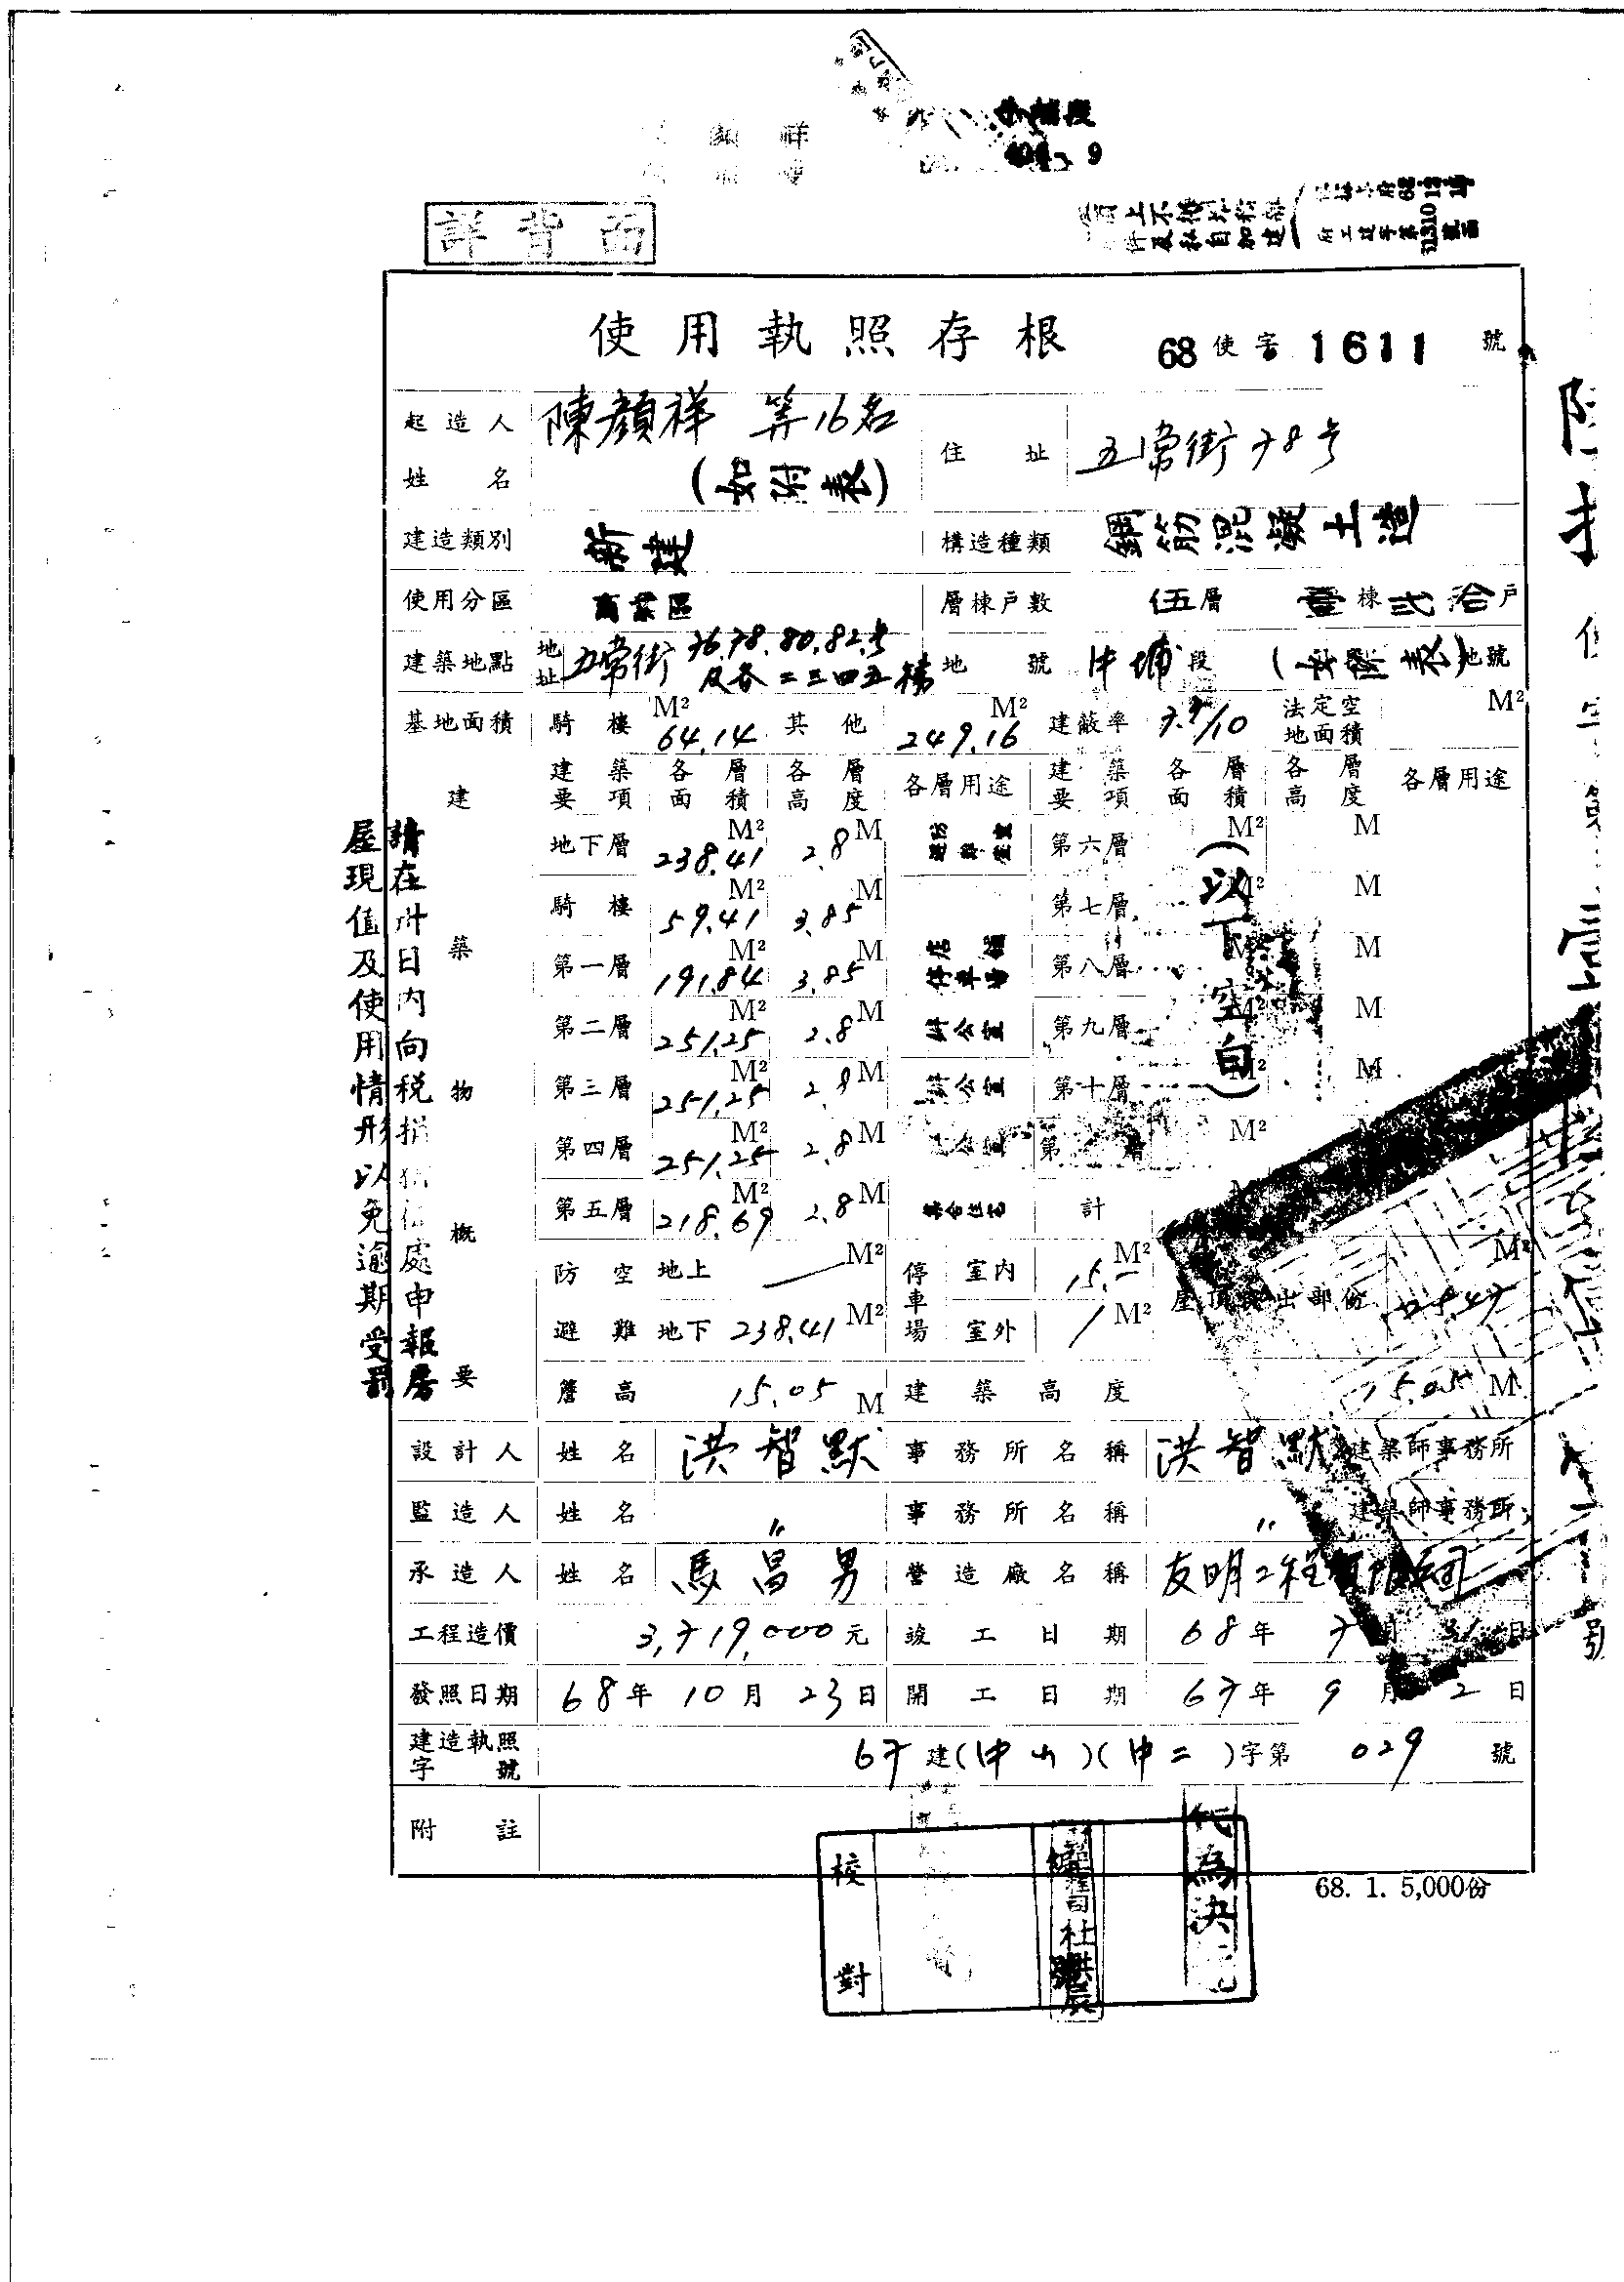 中埔段
9
詳背面
使用執照存根 68使字1611號
起造人姓名 陳顏祥 等16名 (如附表) 住址 五常街78号
建造類別 新建 構造種類 鋼筋混凝土造
使用分區 商業區 層棟戶數 伍層 壹棟弍拾戶
建築地點 地址 五常街76.78.80.82.号及各二三四五樓 地號 中埔段(如附表)地號
基地面積 騎樓 64.14 M² 其他 249.16 M² 建蔽率 7.7/10 法定空地面積 M²
建築物概要
建築要項 各層面積 各層高度 各層用途 建築要項 各層面積 各層高度 各層用途
地下層 238.41 M² 2.8 M 第六層 M² M
騎樓 59.41 M² 3.85 M 第七層 M² M
第一層 191.84 M² 3.85 M 店舖 停車場 第八層 M² M
第二層 251.25 M² 2.8 M 辦公室 第九層 M² M
第三層 251.25 M² 2.8 M 辦公室 第十層 M² M
第四層 251.25 M² 2.8 M 第 層 M²
第五層 218.69 M² 2.8 M 集合住宅 計
(以下空白)
防空避難 地上 — M² 地下 238.41 M² 停車場 室內 15.- M² 室外 / M² 屋頂突出部份 M²
簷高 15.05 M 建築高度 15.05 M
設計人 姓名 洪智默 事務所名稱 洪智默建築師事務所
監造人 姓名 〃 事務所名稱 〃 建築師事務所
承造人 姓名 馬昌男 營造廠名稱 友明工程有限公司
工程造價 3,719,000元 竣工日期 68年7月31日
發照日期 68年10月23日 開工日期 67年9月2日
建造執照字號 67建(中山)(中二)字第029號
附註
請在卅日內向稅捐稽徵處申報房
屋現值及使用情形以免逾期受罰
校對
代為決
68. 1. 5,000份